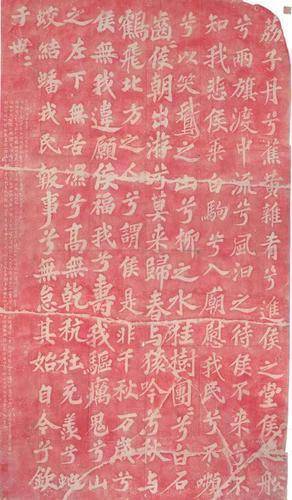 荔子丹兮蕉黄雜肴兮進侯之堂侯之船
兮兩旗渡中流兮風汩之待侯不來兮不
知我悲侯乘白駒兮入廟慰我民兮不嚬
兮以笑鵞之山兮柳之水桂樹團〻兮白石
齒〻侯朝出游兮莫来歸春与猿吟兮秋与
鶴飛北方之人兮謂侯是非千秋万歲兮
侯無我違願侯福我兮壽我驅癘鬼兮山
之左下無苦濕兮高無乾秔稌充羡兮蛇
蛟結蟠我民報事兮無怠其始自今兮欽
于世〻